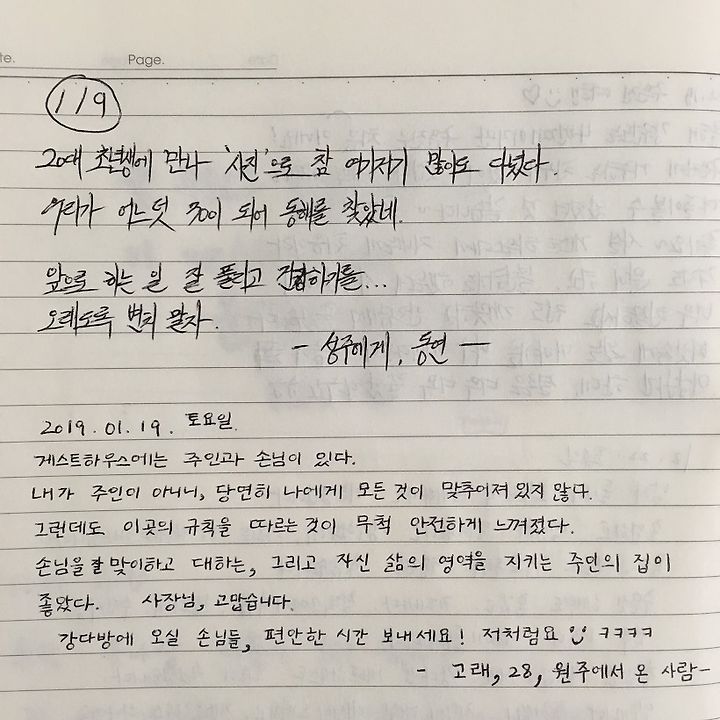 te.
Page.
1/9
20대 초반에 만나 '사진'으로 참 여기저기 많이도 다녔다.
우리가 어느덧 30이 되어 동해를 찾았네.
앞으로 하는 일 잘 풀리고 건강하기를...
오래도록 변치 말자.
- 성주에게, 동연 -
2019.01.19. 토요일.
게스트하우스에는 주인과 손님이 있다.
내가 주인이 아니니, 당연히 나에게 모든 것이 맞추어져 있지 않다.
그런데도 이곳의 규칙을 따르는 것이 무척 안전하게 느껴졌다.
손님을 잘 맞이하고 대하는, 그리고 자신 삶의 영역을 지키는 주인의 집이
좋았다. 사장님, 고맙습니다.
강다방에 오실 손님들, 편안한 시간 보내세요! 저처럼요 ㅋㅋㅋㅋ
- 고래, 28, 원주에서 온 사람-